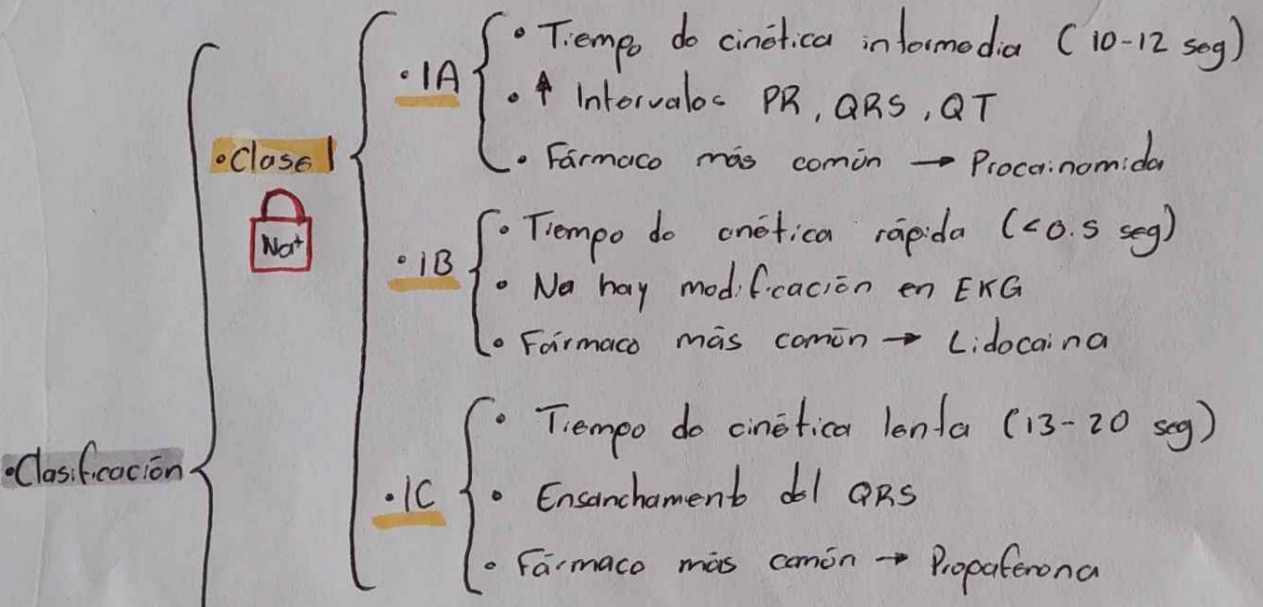 • Clasificación
• Clase I
Na+
• IA
• Tiempo de cinética intermedia (10-12 seg)
• ↑ Intervalos PR, QRS, QT
• Fármaco más común → Procainamida
• IB
• Tiempo de cnética rápida (<0.5 seg)
• No hay modificación en EKG
• Fármaco más común → Lidocaina
• IC
• Tiempo de cinética lenta (13-20 seg)
• Ensanchamento del QRS
• Fármaco más común → Propafenona